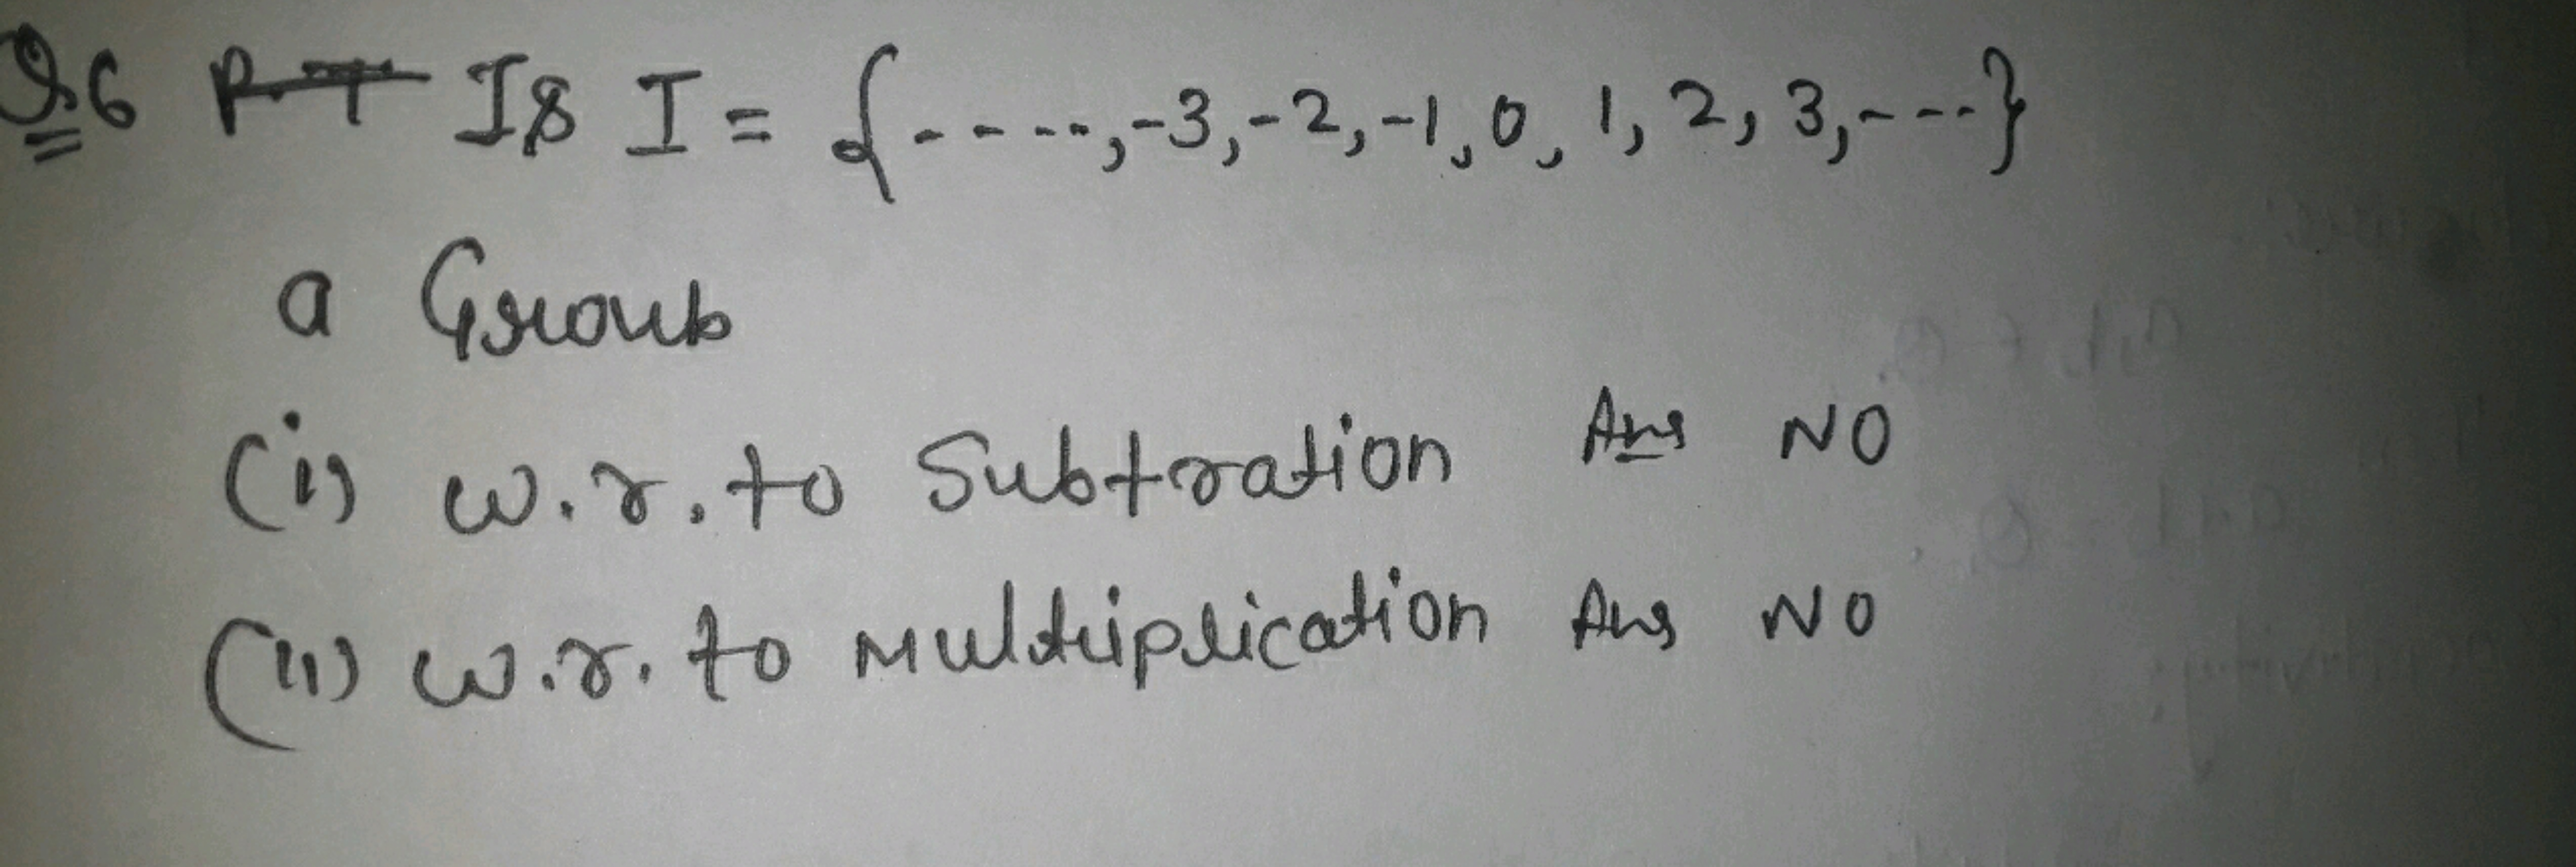 Q.6 P.T Is I = {-----,-3,-2,-1,0,1,2,3,----}
a Group
(i) w.r.to Subtration Ans NO
(ii) w.r.to Multiplication Ans NO